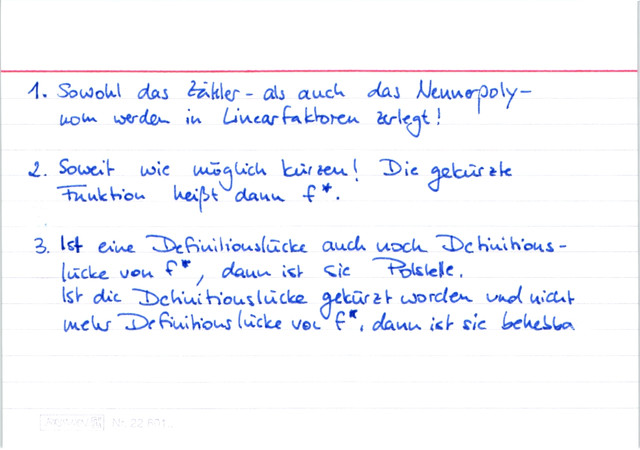 1. Sowohl das Zähler- als auch das Nennerpoly-
nom werden in Linearfaktoren zerlegt!
2. Soweit wie möglich kürzen! Die gekürzte
Funktion heißt dann f*.
3. Ist eine Definitionslücke auch noch Definitions-
lücke von f*, dann ist sie Polstelle.
Ist die Definitionslücke gekürzt worden und nicht
mehr Definitionslücke von f*, dann ist sie behebba